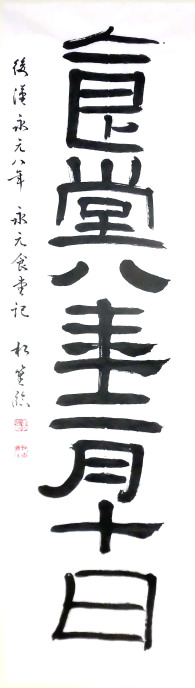 食堂八年二月十日
後漢永元八年 永元食堂記 松堂臨